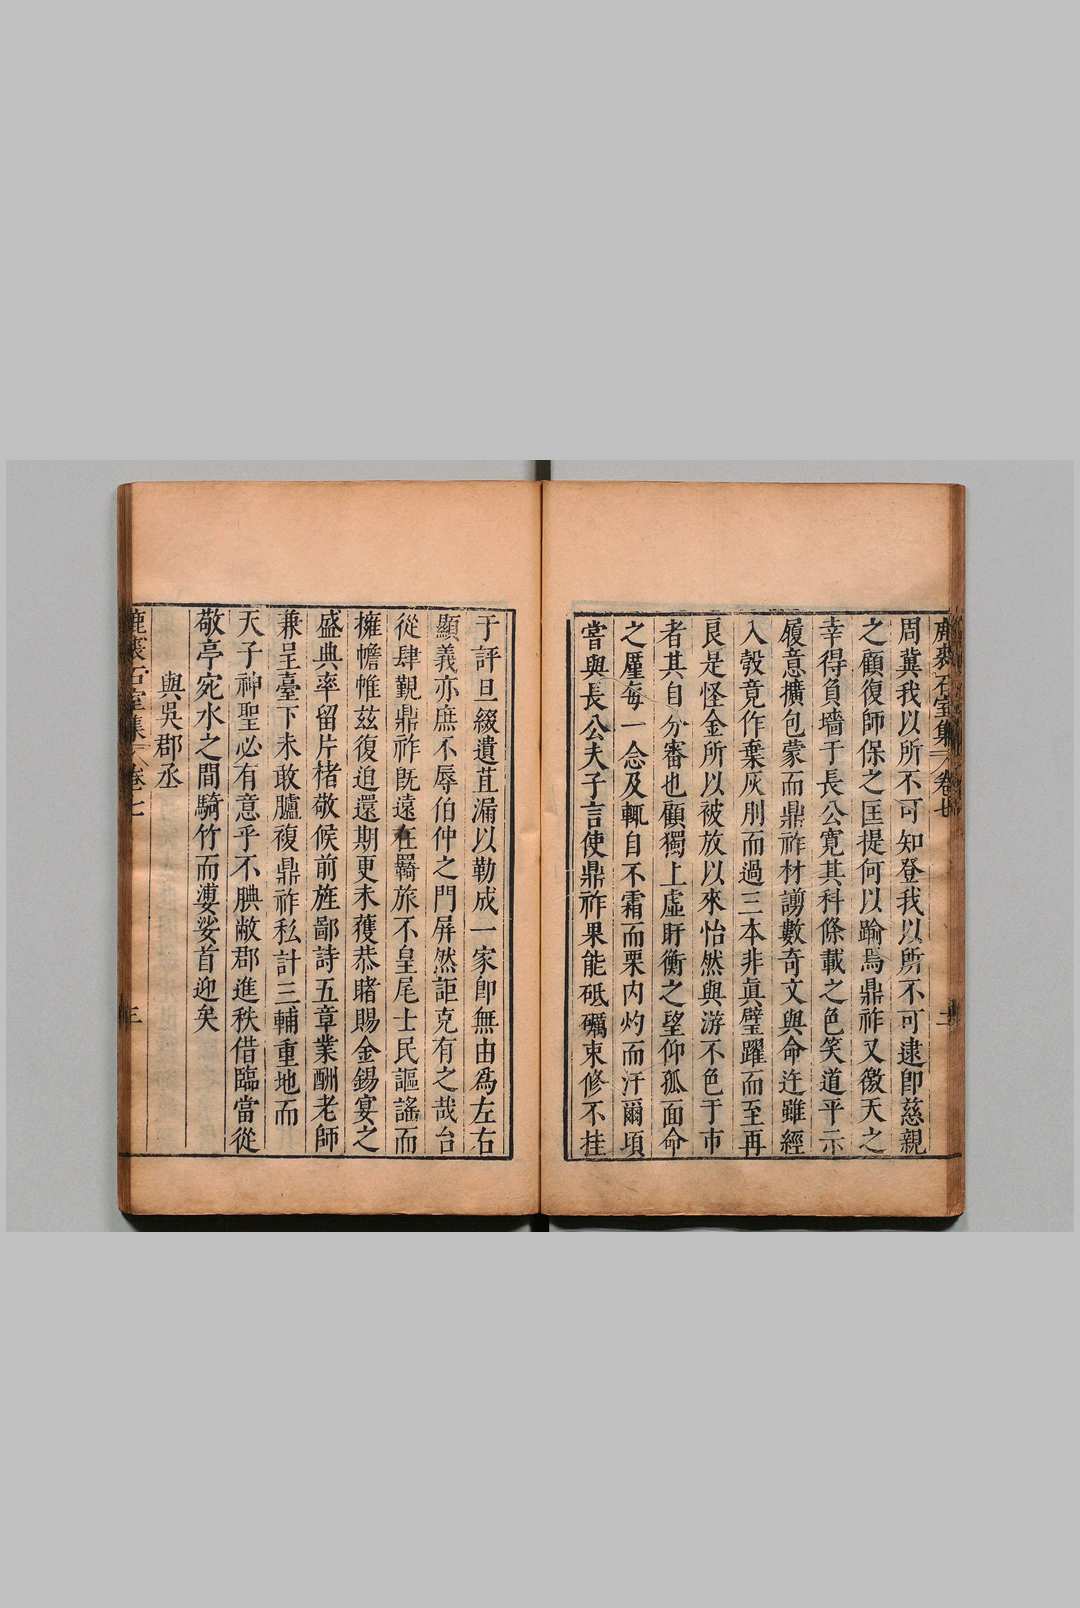 鹿裘石室集 卷七
周冀我以所不可知登我以所不可逮卽慈親
之顧復師保之匡提何以踰焉鼎祚又徼天之
幸得負墻于長公寛其科條載之色笑道平示
履意擴包蒙而鼎祚材謭數奇文與命迕雖經
入彀竟作棄灰刖而過三本非眞璧躍而至再
良是怪金所以被放以來怡然與游不色于市
者其自分審也顧獨上虛盱衡之望仰孤面命
之厪每一念及輒自不霜而栗内灼而汗爾頃
嘗與長公夫子言使鼎祚果能砥礪束修不挂
于評旦綴遺苴漏以勒成一家卽無由爲左右
顯義亦庶不辱伯仲之門屏然詎克有之哉台
從肆覲鼎祚旣遠在羇旅不皇尾士民謳謠而
擁幨帷兹復迫還期更未獲恭睹賜金錫宴之
盛典率留片楮敬候前旌鄙詩五章業酬老師
兼呈臺下未敢臚複鼎祚私計三輔重地而
天子神聖必有意乎不腆敝郡進秩借臨當從
敬亭宛水之間騎竹而漊娑首迎矣
與吳郡丞
鹿裘石室集 卷七 三